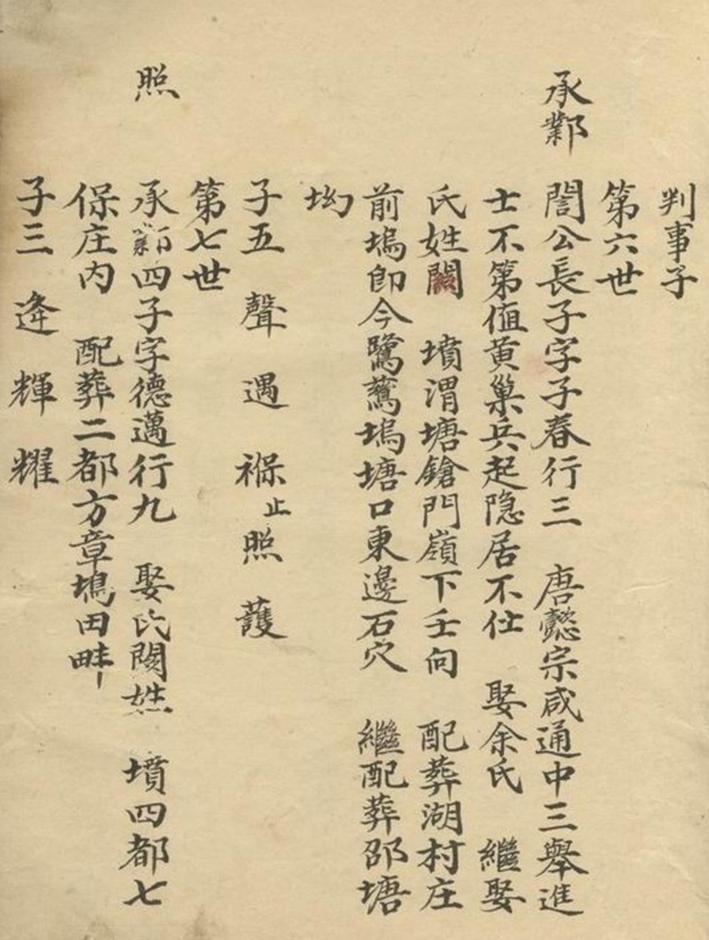 判事子
第六世
承鄴
誾公長子字子春行三 唐懿宗咸通中三舉進
士不第值黃巢兵起隐居不仕 娶余氏 繼娶
氏姓闕 墳渭塘鎗門嶺下壬向 配葬湖村庄
前塢卽今鷺鷥塢塘口東邊石穴 繼配葬邵塘
坳
子五 聲 遇 褓止 照 護
第七世
照
承鄴四子字德邁行九 娶氏闕姓 墳四都七
保庄内 配葬二都方章塢田畔
子三 逄 輝 耀